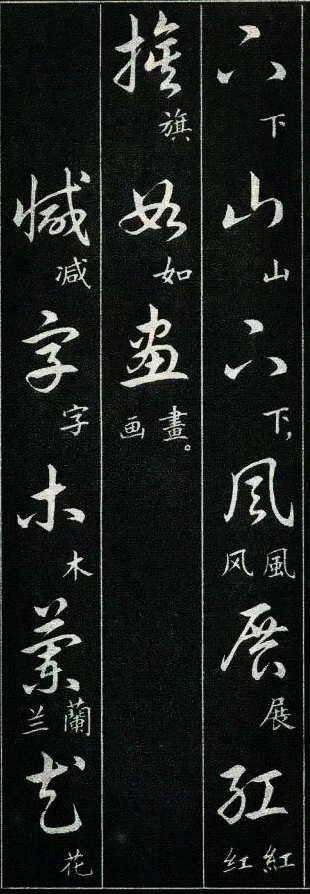 下下山山下下，風風风展展紅紅红
旗旗如如畫畫。画
減减字字木木蘭蘭兰花花